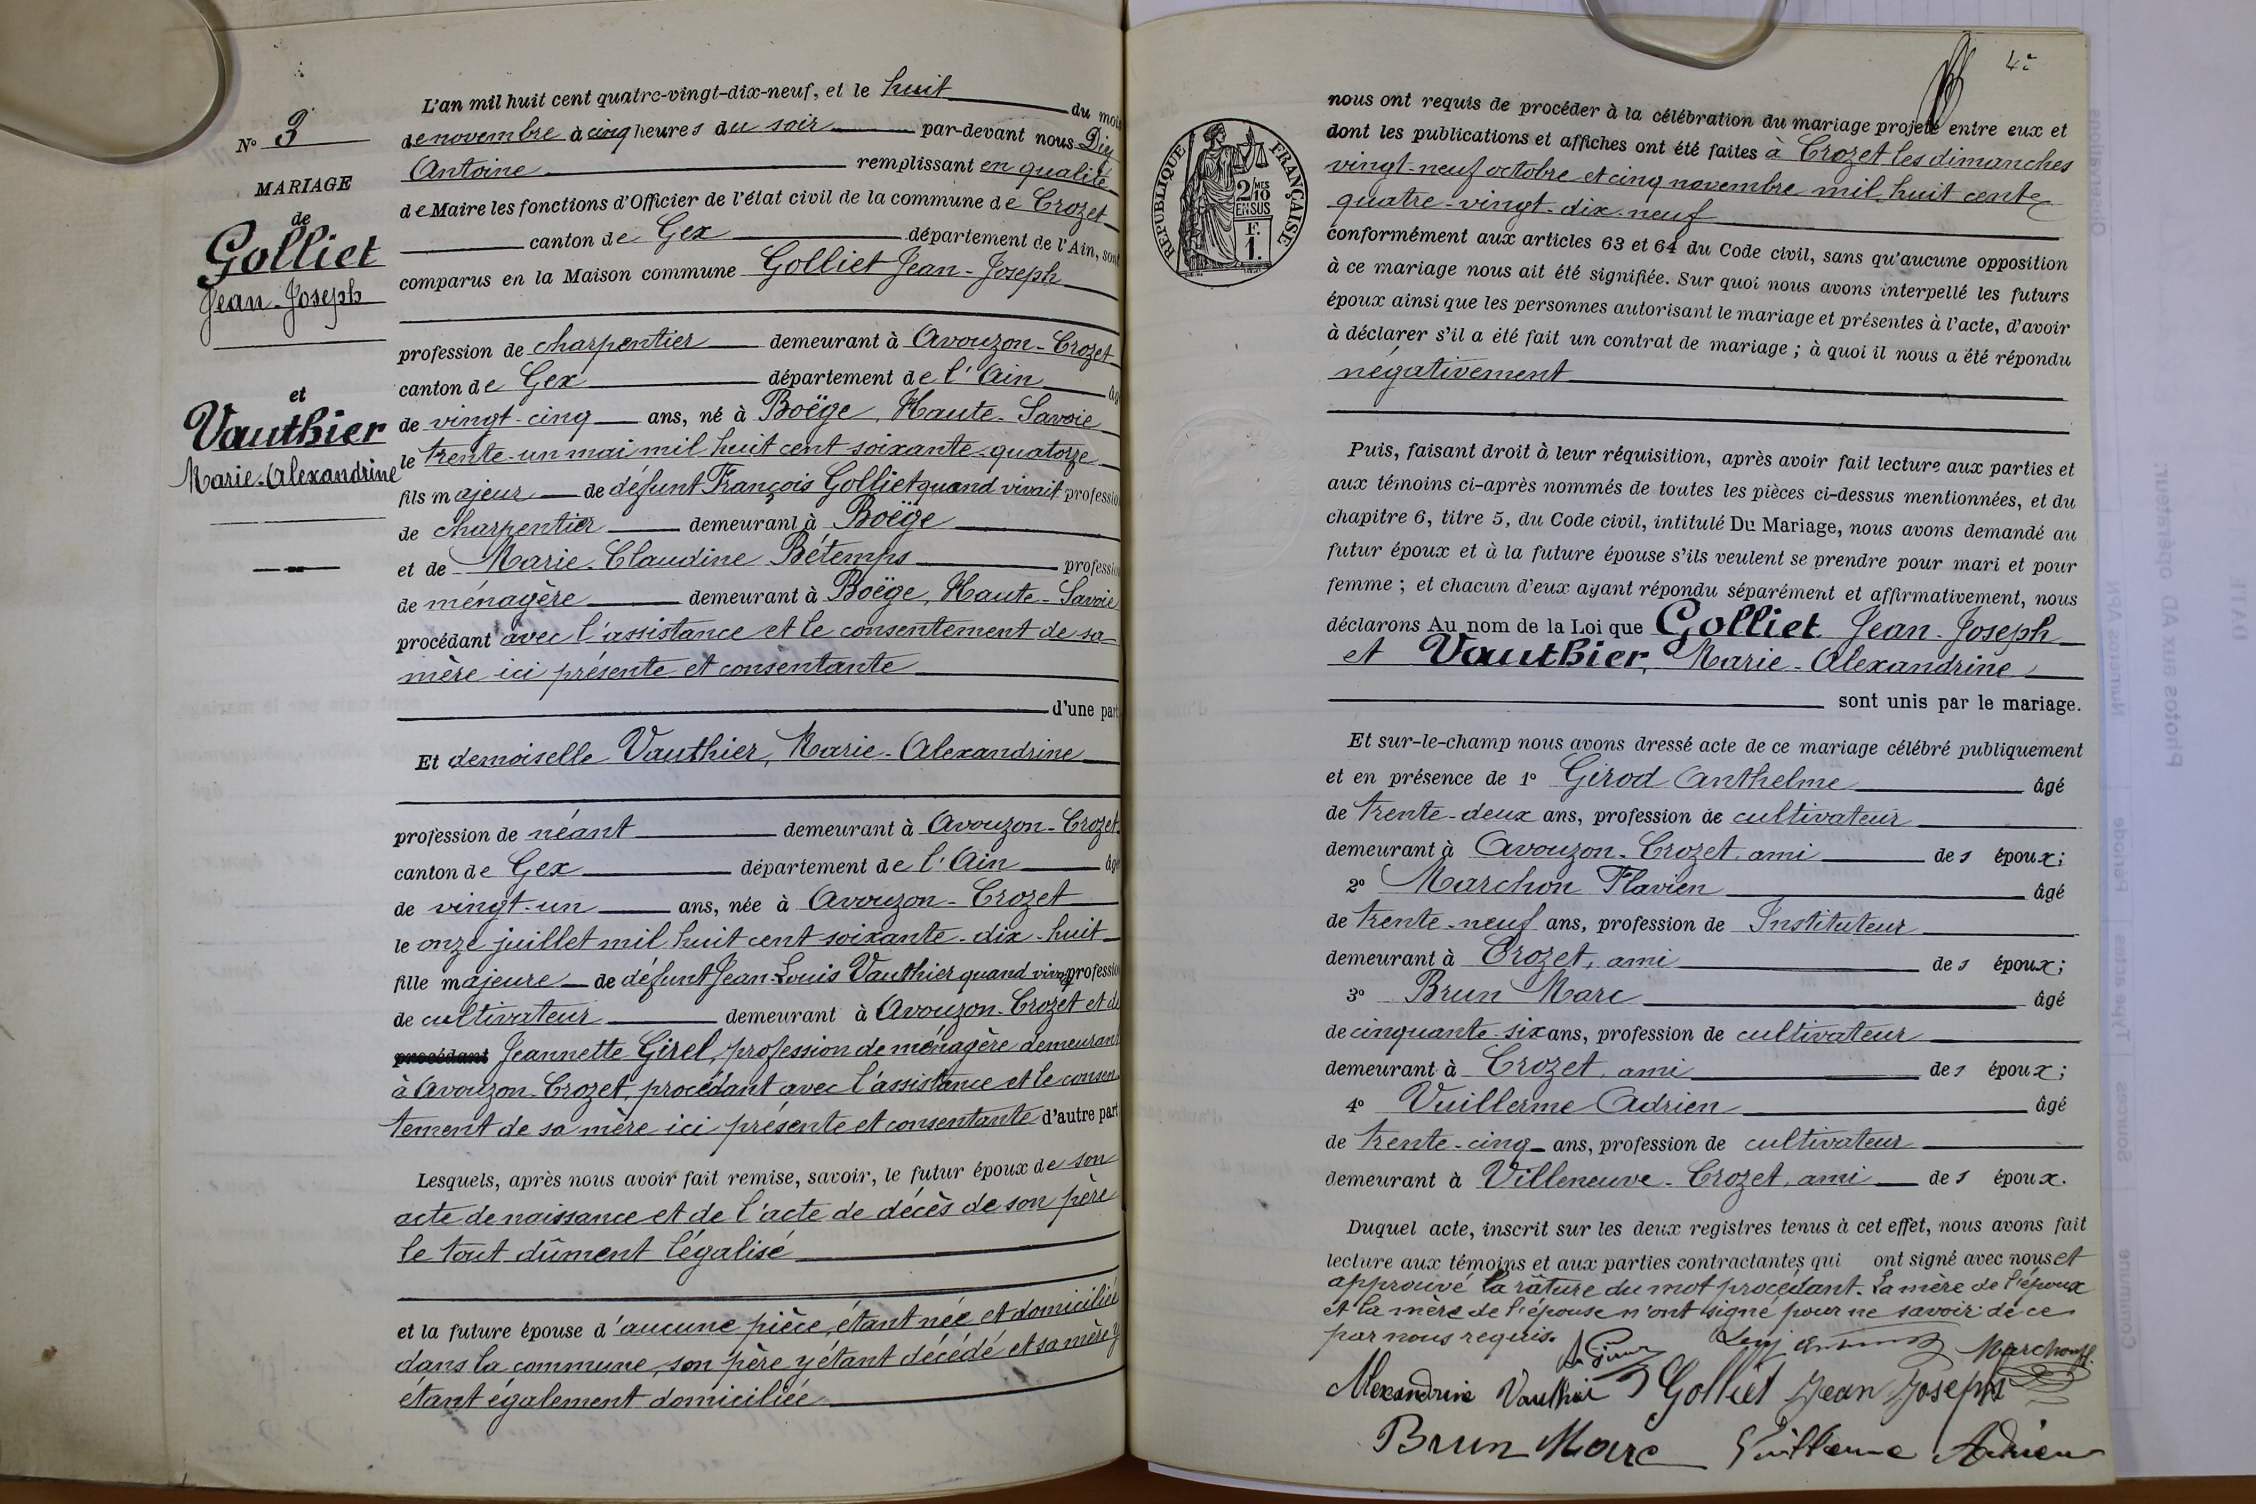 N° 3
MARIAGE
de
Golliet
Jean-Joseph
et
Vauthier
Marie-Alexandrine
L'an mil huit cent quatre-vingt-dix-neuf, et le huit du mois
de novembre à cinq heures du soir par-devant nous
Antoine remplissant en qualité
de Maire les fonctions d'Officier de l'état civil de la commune de Crozet
canton de Gex département de l'Ain, sont
comparus en la Maison commune Golliet Jean-Joseph
profession de charpentier demeurant à Avouzon-Crozet
canton de Gex département de l'Ain âgé
de vingt-cinq ans, né à Boëge, Haute-Savoie
le trente-un mai mil huit cent soixante-quatorze
fils majeur de défunt François Golliet quand vivait profession
de charpentier demeurant à Boëge
et de Marie-Claudine Bétemps profession
de ménagère demeurant à Boëge, Haute-Savoie
procédant avec l'assistance et le consentement de sa
mère ici présente et consentante
d'une part
Et demoiselle Vauthier, Marie-Alexandrine
profession de néant demeurant à Avouzon-Crozet
canton de Gex département de l'Ain âgé
de vingt-un ans, née à Avouzon-Crozet
le onze juillet mil huit cent soixante-dix-huit
fille majeure de défunt Jean-Louis Vauthier quand vivait profession
de cultivateur demeurant à Avouzon-Crozet et de
procédant Jeannette Girel, profession de ménagère demeurant
à Avouzon-Crozet, procédant avec l'assistance et le consen
tement de sa mère ici présente et consentante d'autre part
Lesquels, après nous avoir fait remise, savoir, le futur époux de son
acte de naissance et de l'acte de décès de son père
le tout dûment légalisé
et la future épouse d'aucune pièce, étant née et domiciliée
dans la commune, son père y étant décédé et sa mère y
étant également domiciliée
4e
RÉPUBLIQUE FRANÇAISE
2 MES
10
EN SUS
F.
1.
nous ont requis de procéder à la célébration du mariage projeté entre eux et
dont les publications et affiches ont été faites à Crozet les dimanches
vingt-neuf octobre et cinq novembre mil huit cent
quatre-vingt-dix-neuf
conformément aux articles 63 et 64 du Code civil, sans qu'aucune opposition
à ce mariage nous ait été signifiée. Sur quoi nous avons interpellé les futurs
époux ainsi que les personnes autorisant le mariage et présentes à l'acte, d'avoir
à déclarer s'il a été fait un contrat de mariage ; à quoi il nous a été répondu
négativement
Puis, faisant droit à leur réquisition, après avoir fait lecture aux parties et
aux témoins ci-après nommés de toutes les pièces ci-dessus mentionnées, et du
chapitre 6, titre 5, du Code civil, intitulé Du Mariage, nous avons demandé au
futur époux et à la future épouse s'ils veulent se prendre pour mari et pour
femme ; et chacun d'eux ayant répondu séparément et affirmativement, nous
déclarons Au nom de la Loi que Golliet Jean-Joseph
et Vauthier, Marie-Alexandrine
sont unis par le mariage.
Et sur-le-champ nous avons dressé acte de ce mariage célébré publiquement
et en présence de 1° Girod Anthelme âgé
de trente-deux ans, profession de cultivateur
demeurant à Avouzon-Crozet, ami des époux;
2° Marchon Flavien âgé
de trente-neuf ans, profession de Instituteur
demeurant à Crozet, ami des époux;
3° Brun Marc âgé
de cinquante-six ans, profession de cultivateur
demeurant à Crozet, ami des époux;
4° Vuillerme Adrien âgé
de trente-cinq ans, profession de cultivateur
demeurant à Villeneuve-Crozet, ami des époux.
Duquel acte, inscrit sur les deux registres tenus à cet effet, nous avons fait
lecture aux témoins et aux parties contractantes qui ont signé avec nous et
approuvé la râture du mot procédant. La mère de l'époux
et la mère de l'épouse n'ont signé pour ne savoir de ce
par nous requis.
Marchon F.
Alexandrine Vauthier Golliet Jean Joseph
Brun Marc Vuillerme Adrien